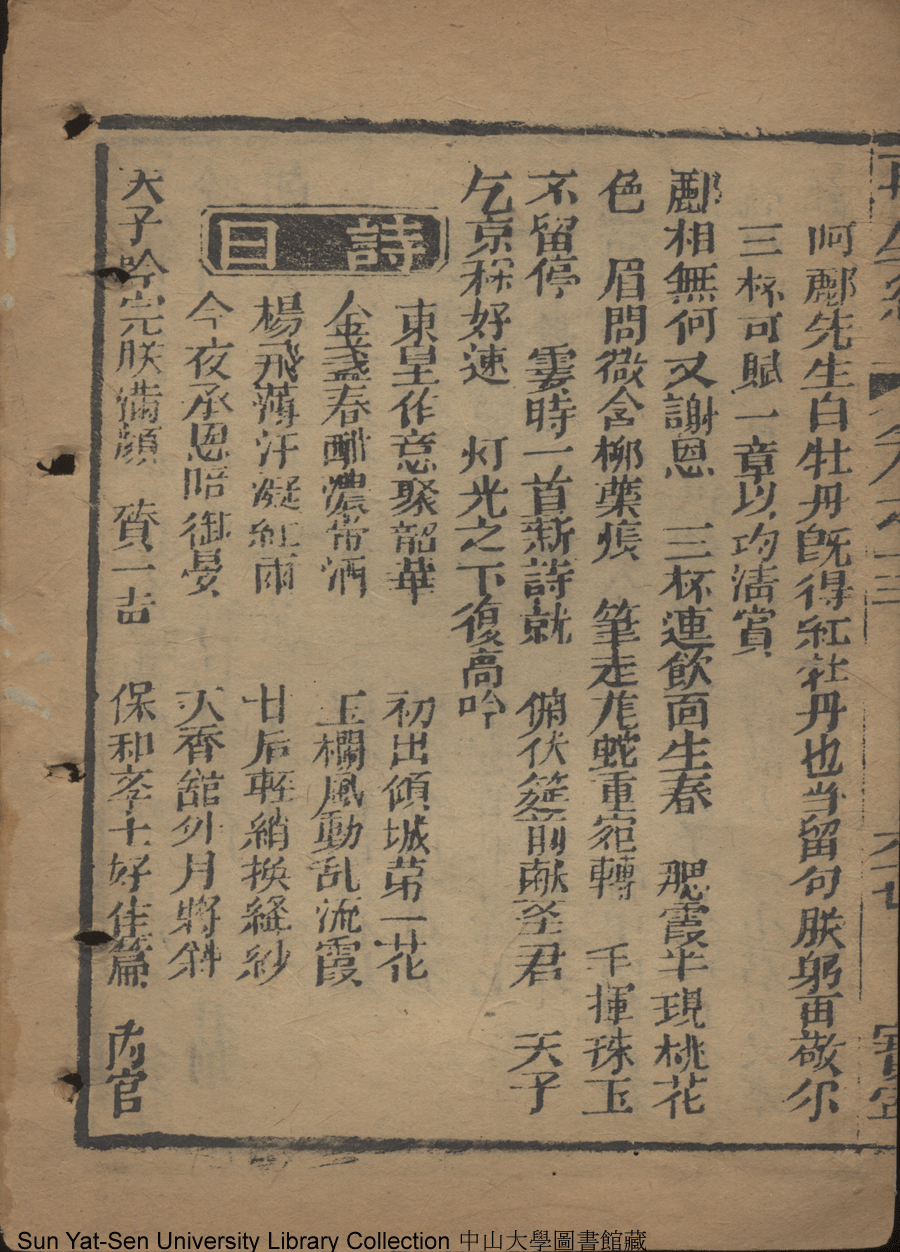 阿酈先生白牡丹既得紅牡丹也当留句朕躬再敬尔
三杯可賦一章以均清賞
酈相無何又謝恩　三杯連飲面生春　腮霞半現桃花
色　眉間微含柳葉痕　筆走龙蛇重宛轉　手揮珠玉
不留停　霎時一首新詩就　俯伏筵前献圣君　天子
乞京称好速　灯光之下復高吟
詩曰
東皇作意聚韶華　初出傾城苐一花
金盞春酣濃帶酒　玉欄風動乱流霞
楊飛薄汗凝紅雨　甘后輕綃换縫紗
今夜承恩陪御晏　天香舘外月將斜
天子吟完朕滿顔　賛一吉　保和李士好佳篇　内官
Sun Yat-Sen University Library Collection 中山大學圖書館藏